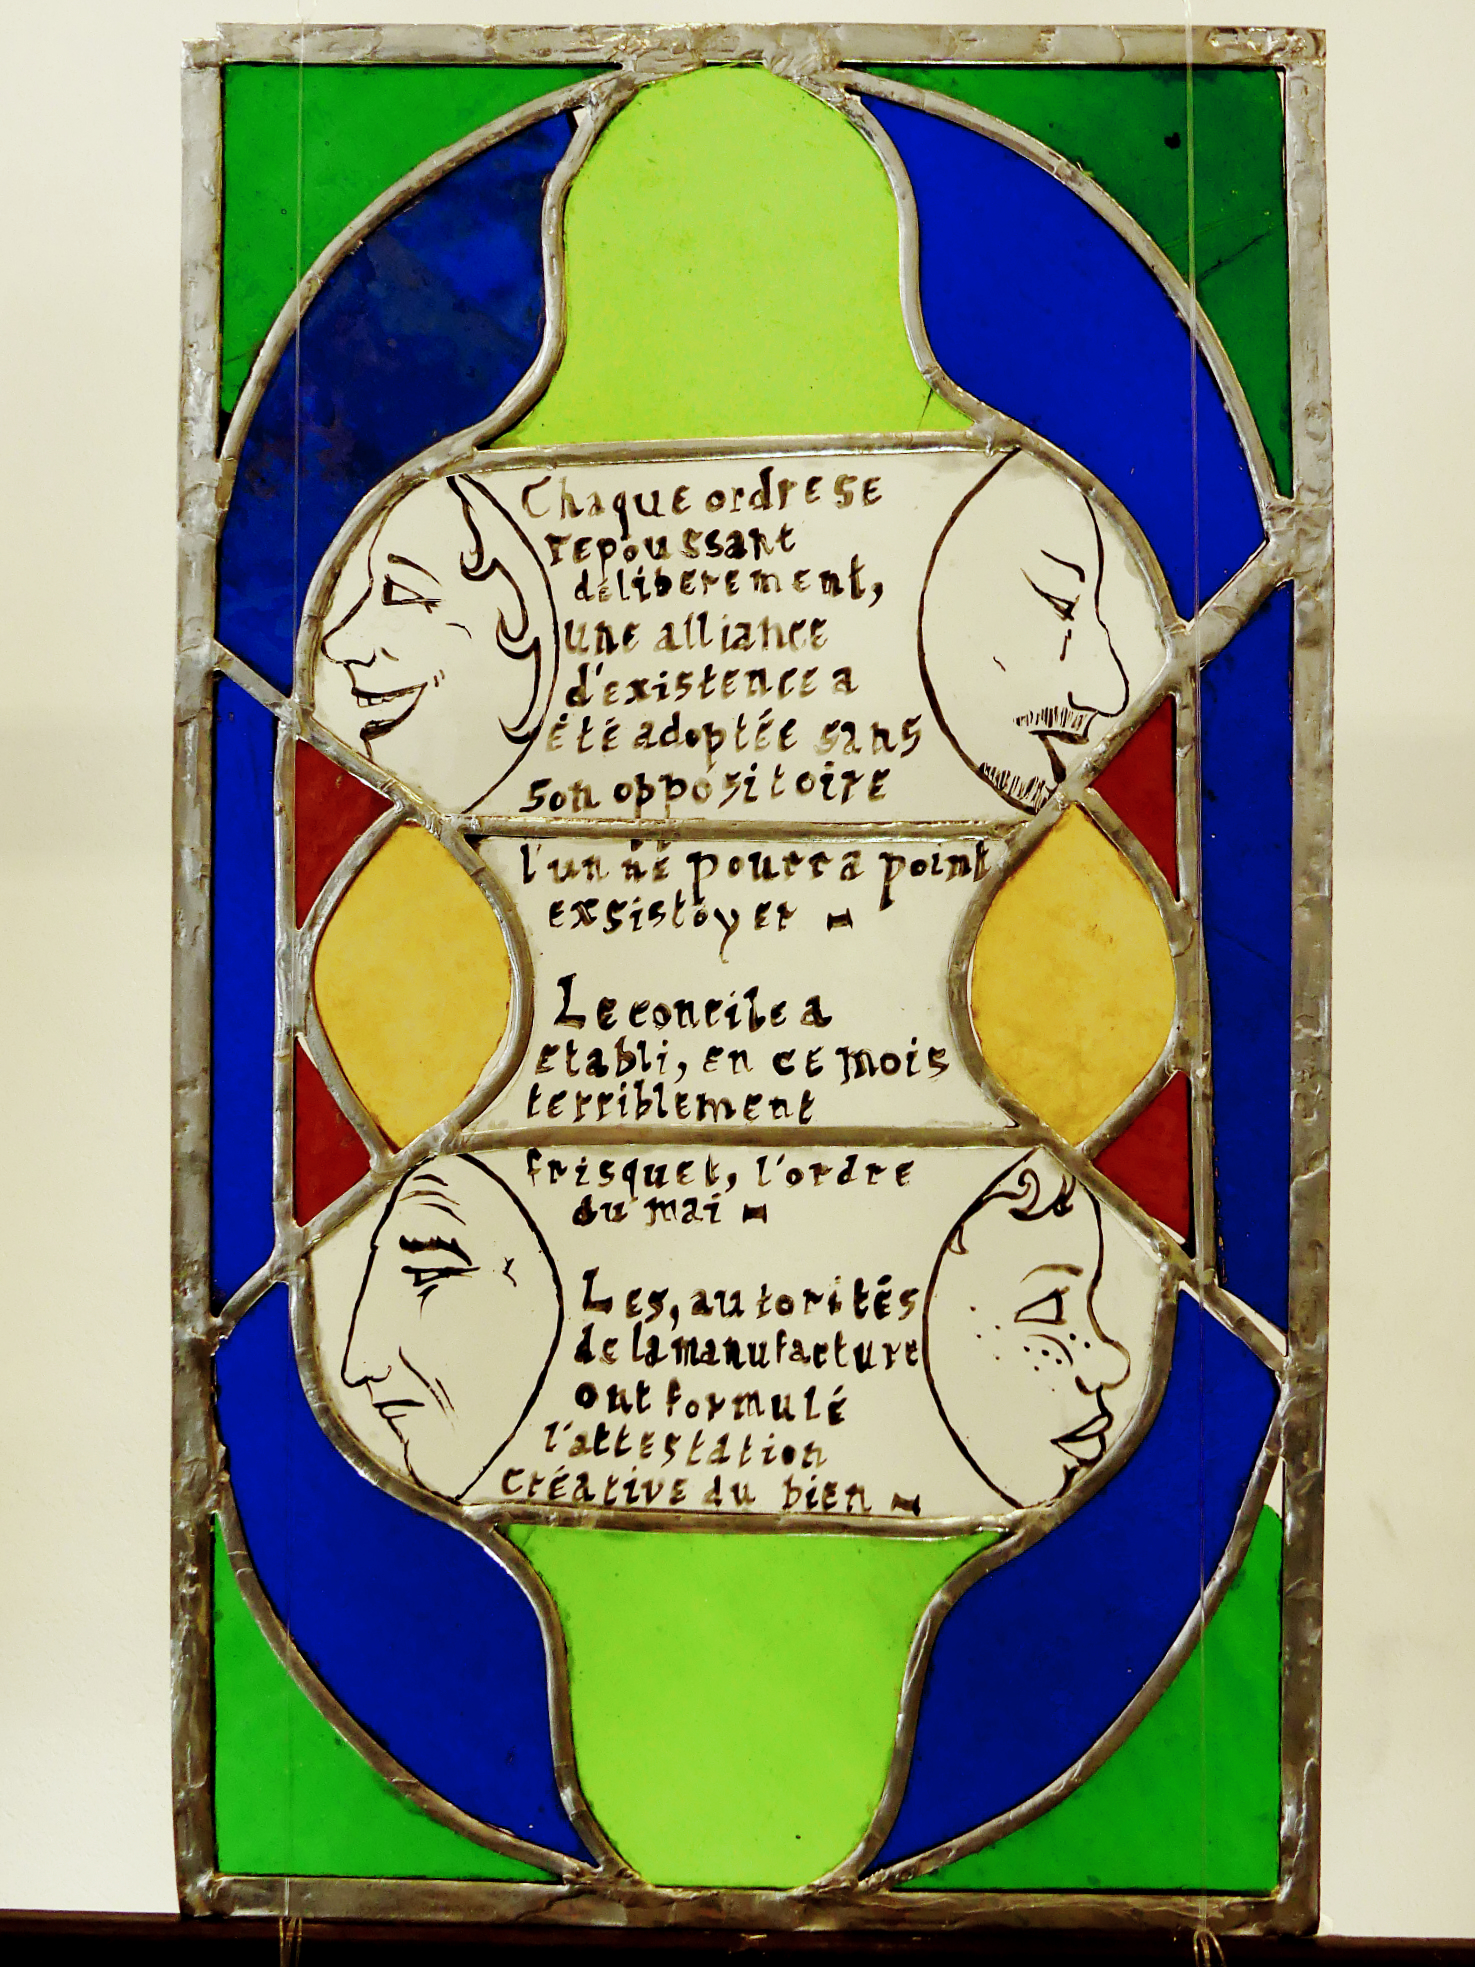 Chaque ordre se
repoussant
déliberement,
une alliance
d'existence a
été adoptée sans
son oppositoire
l'un ne pourra point
exsistoyer -
Le concile a
etabli, en ce mois
terriblement
frisquet, l'ordre
du mai -
Les, autorités
de la manufacture
ont formulé
l'attestation
créative du bien -